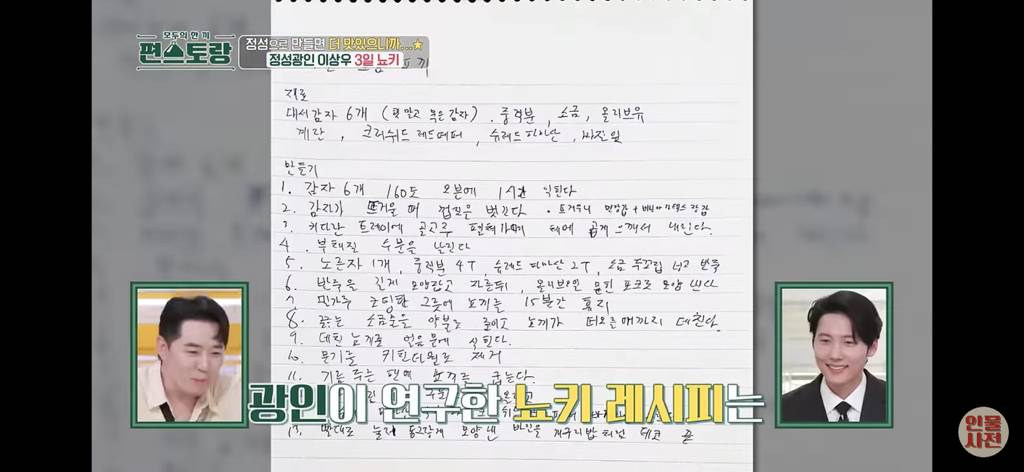 모두의 한 끼
편스토랑
정성으로 만들면 더 맛있으니까...★
정성광인 이상우 3일 뇨키
재료
대서감자 6개 (햇 말고 묵은 감자), 중력분, 소금, 올리브유
계란, 크러쉬드 레드페퍼, 슈레드 파마산, 싸질잎
만들기
1. 감자 6개 160도 오븐에 1시간 익힌다
2. 감자가 뜨거울 때 껍질을 벗긴다 · 뜨거우니 면장갑 + 장갑
3. 커다란 트레이에 골고루 펼쳐가며 체에 곱게 으깨서 내린다.
4. 부채질 수분을 날린다
5. 노른자 1개, 중력분 4T, 슈레드 파마산 2T, 소금 두꼬집 넣고 반죽
6. 반죽을 길게 모양잡고 자른뒤, 올리브오일 묻힌 포크로 모양 낸다
7. 밀가루 코팅한 그릇에 뇨끼는 15분간 휴지
8. 끓는 소금물을 약불로 줄이고 뇨끼가 떠오를때까지 데친다.
9. 데친 뇨끼를 얼음물에 식힌다.
10. 물기를 키친타월로 제거
11. 기름 두른 팬에 뇨끼를 굽는다.
13. 눌러 동그랗게 모양 낸 바질을 개구리밥처럼 데코 끝
광인이 연구한 뇨키 레시피는
인물
사전